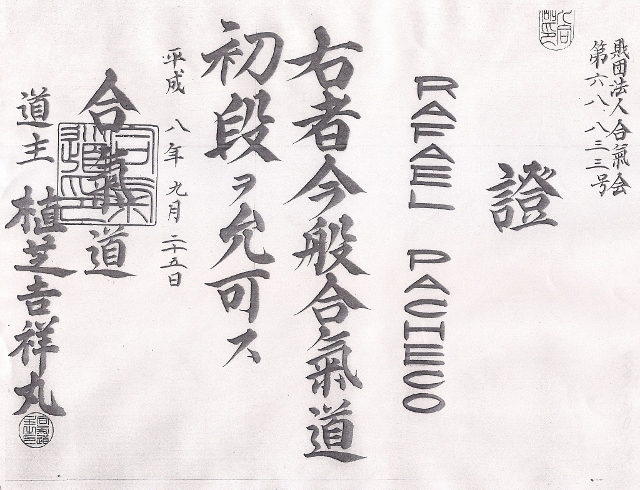 財団法人合氣会
第六八八三三号
證
RAFAEL PACHECO
右者今般合氣道
初段ヲ允可ス
平成 八年 九月 二十五日
合氣道
道主 植芝吉祥丸